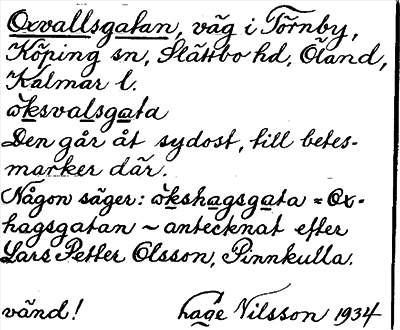 Oxvallsgatan, väg i Törnby,
Köping sn, Slättbo hd, Öland,
Kalmar l.
ŏksvalsgata
Den går åt sydost, till betes-
marker där.
Någon säger: ŏkshagsgata = Ox-
hagsgatan ~ antecknat efter
Lars Petter Olsson, Pinnkulla.
vänd! hage Nilsson 1934